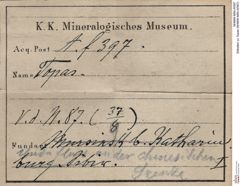 K. K. Mineralogisches Museum.
Acq. Post A. f 397.
Name Topas.
V. d. N. 87. (37/8)
Fundort Mursinsk b. Katharin
burg. Sibir. I
an der chinesischen
Grenze